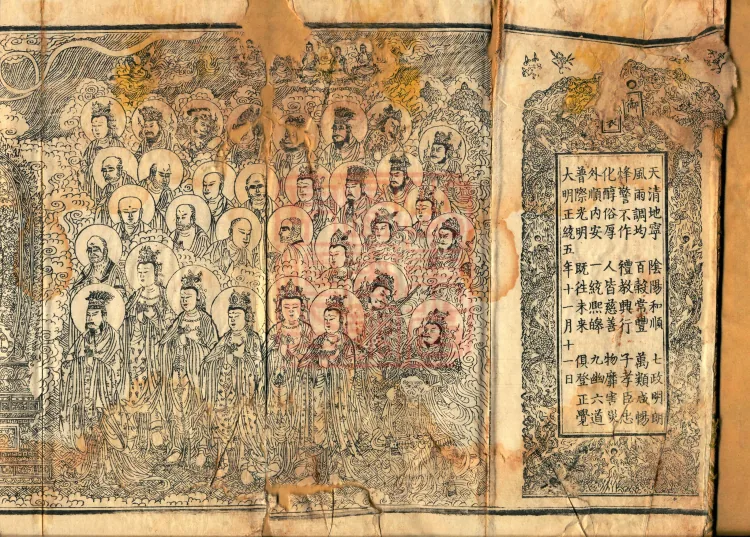 天清地寧 陰陽和順 七政明朗
風雨調均 百穀常豐 萬類咸暢
烽警不作 禮教興行 子孝臣忠
化醇俗厚 人皆慈善 物靡害災
外順內安 一統熙皞 九幽六道
普際光明 既往未來 俱登正覺
大明正統五年十一月十一日